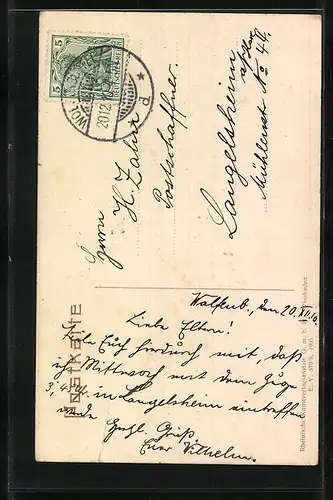 5
5
DEUTSCHES REICH
20.12
* d *
Herrn
H. Zahn
Postschaffner
Langelsheim
Mühlenstr No 40.
Postkarte
den 20.XII.10.
Liebe Eltern!
Teile Euch hierdurch mit, daß
ich Mittwoch mit dem Zuge
3,45 in Langelsheim eintreffen
werde
Herzl. Gruß
Euer Wilhelm.
Rheinische Kunstverlagsanstalt G. m. b. H., Wiesbaden